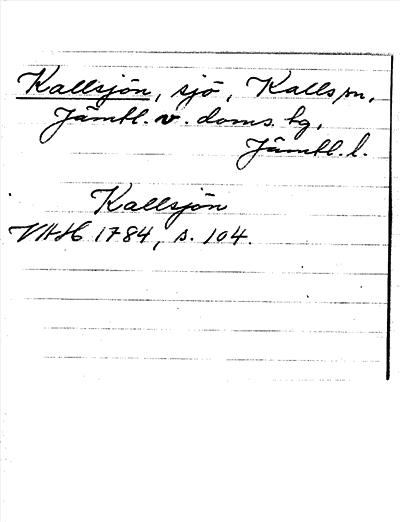 Kallsjön, sjö, Kalls sn,
Jämtl. v. doms. hg,
Jämtl. l.
Kallsjön
VAH 1784, s. 104.